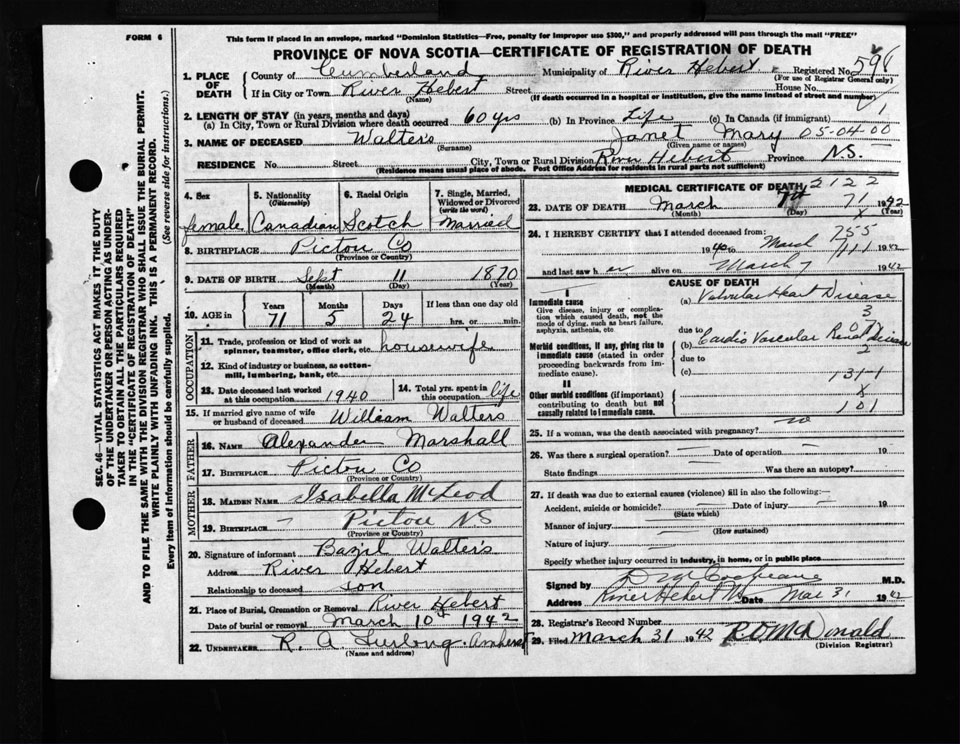 FORM 6
This form if placed in an envelope, marked "Dominion Statistics—Free, penalty for improper use $300," and properly addressed will pass through the mail "FREE"
PROVINCE OF NOVA SCOTIA—CERTIFICATE OF REGISTRATION OF DEATH
1. PLACE OF DEATH
County of Cumberland Municipality of River Hebert Registered No. 598
(For use of Registrar General only)
If in City or Town River Hebert Street House No.
(Name) (If death occurred in a hospital or institution, give the name instead of street and number)
2. LENGTH OF STAY (in years, months and days)
(a) In City, Town or Rural Division where death occurred 60 yrs (b) In Province Life (c) In Canada (if immigrant) 1
3. NAME OF DECEASED Walters Janet Mary 05-04-00
(Surname) (Given name or names)
RESIDENCE No. Street City, Town or Rural Division River Hebert Province N.S.
(Residence means usual place of abode. Post Office Address for residents in rural parts not sufficient)
4. Sex
female
5. Nationality
(Citizenship)
Canadian
6. Racial Origin
Scotch
7. Single, Married, Widowed or Divorced
(write the word)
Married
8. BIRTHPLACE Pictou Co
(Province or Country)
9. DATE OF BIRTH Sept 11 1870
(Month) (Day) (Year)
10. AGE in Years Months Days If less than one day old
71 5 24 hrs. or min.
OCCUPATION
11. Trade, profession or kind of work as spinner, teamster, office clerk, etc. housewife
12. Kind of industry or business, as cotton-mill, lumbering, bank, etc.
13. Date deceased last worked at this occupation 1940
14. Total yrs. spent in this occupation life
15. If married give name of wife or husband of deceased William Walters
FATHER
16. NAME Alexander Marshall
17. BIRTHPLACE Pictou Co
(Province or Country)
MOTHER
18. MAIDEN NAME Isabella McLeod
19. BIRTHPLACE Pictou NS
(Province or Country)
20. Signature of informant Bazil Walters
Address River Hebert
Relationship to deceased son
21. Place of Burial, Cremation or Removal River Hebert
Date of burial or removal March 10th 1942
22. UNDERTAKER R. A. Furlong Amherst
(Name and address)
MEDICAL CERTIFICATE OF DEATH 2122
23. DATE OF DEATH March 7th 71 1942
(Month) (Day) X (Year)
24. I HEREBY CERTIFY that I attended deceased from: 755
1940 to March 1942
and last saw her alive on March 7 1942
CAUSE OF DEATH
I
Immediate cause
Give disease, injury or complication which caused death, not the mode of dying, such as heart failure, asphyxia, asthenia, etc.
(a) Valvular Heart Disease
3
due to
Morbid conditions, if any, giving rise to immediate cause (stated in order proceeding backwards from immediate cause).
(b) Cardio Vascular Renal Disease
2
due to
(c) 131-1
II
Other morbid conditions (if important) contributing to death but not causally related to immediate cause.
X
101
25. If a woman, was the death associated with pregnancy? no
26. Was there a surgical operation? Date of operation 19
State findings Was there an autopsy?
27. If death was due to external causes (violence) fill in also the following:
Accident, suicide or homicide? Date of injury 19
(State which)
Manner of injury
(How sustained)
Nature of injury
Specify whether injury occurred in industry, in home, or in public place
Signed by D M Cochrane M.D.
Address River Hebert NS Date Mar 31 1942
28. Registrar's Record Number
29. Filed March 31 1942 R O McDonald
(Division Registrar)
SEC. 46—VITAL STATISTICS ACT MAKES IT THE DUTY
OF THE UNDERTAKER OR PERSON ACTING AS UNDER-
TAKER TO OBTAIN ALL THE PARTICULARS REQUIRED
IN THE "CERTIFICATE OF REGISTRATION OF DEATH"
AND TO FILE THE SAME WITH THE DIVISION REGISTRAR WHO SHALL ISSUE THE BURIAL PERMIT.
WRITE PLAINLY WITH UNFADING INK. THIS IS A PERMANENT RECORD.
Every item of information should be carefully supplied. (See reverse side for instructions.)